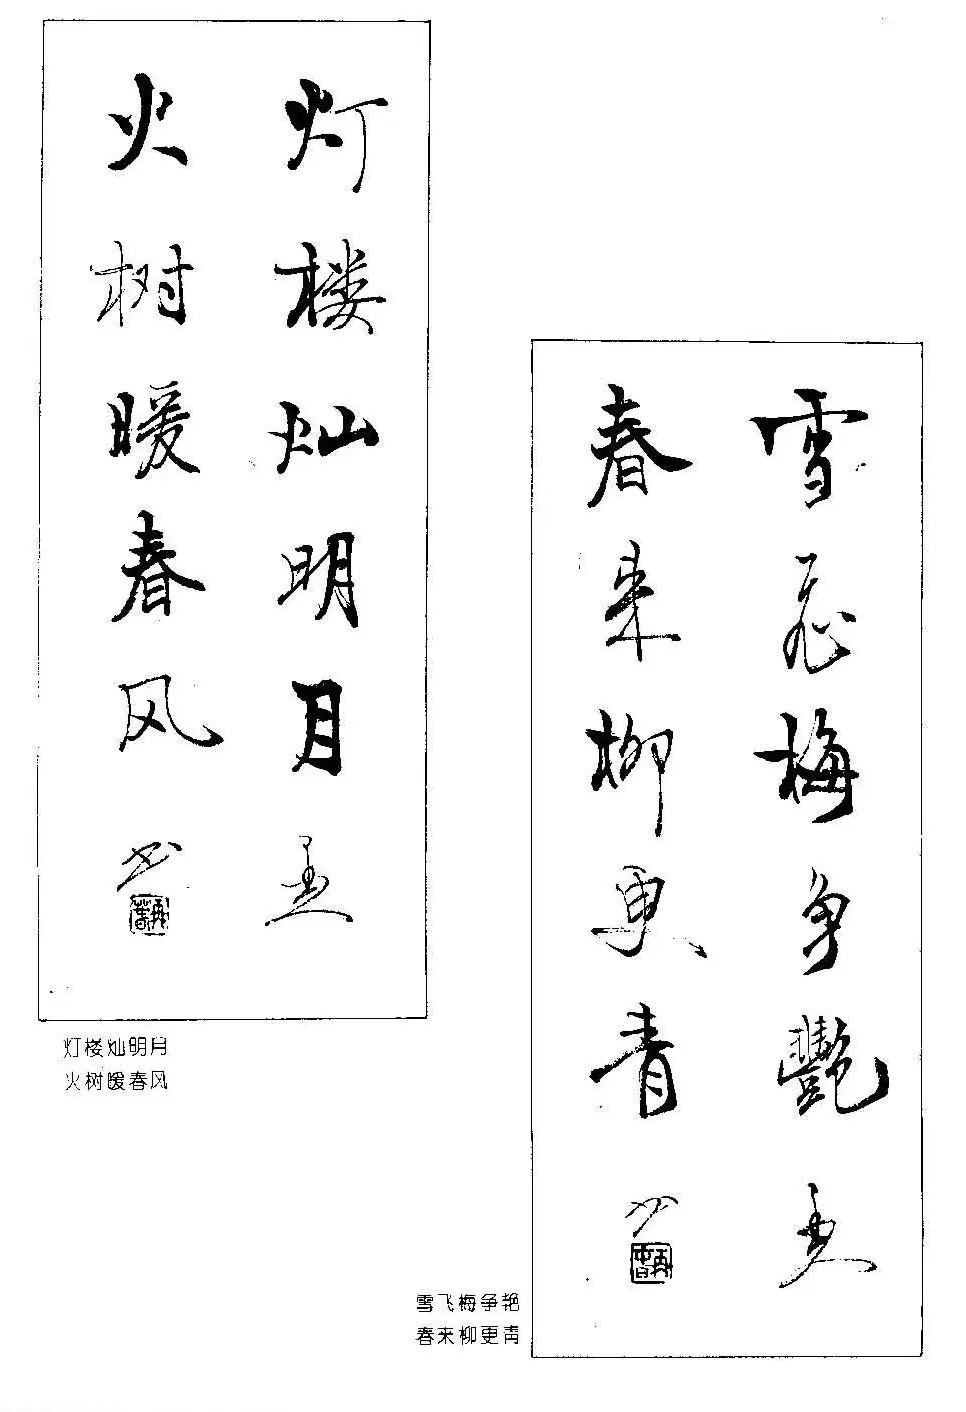 灯楼灿明月
火树暖春风
灯楼灿明月
火树暖春风
雪飞梅争艷
春来柳更青
雪飞梅争艳
春来柳更青